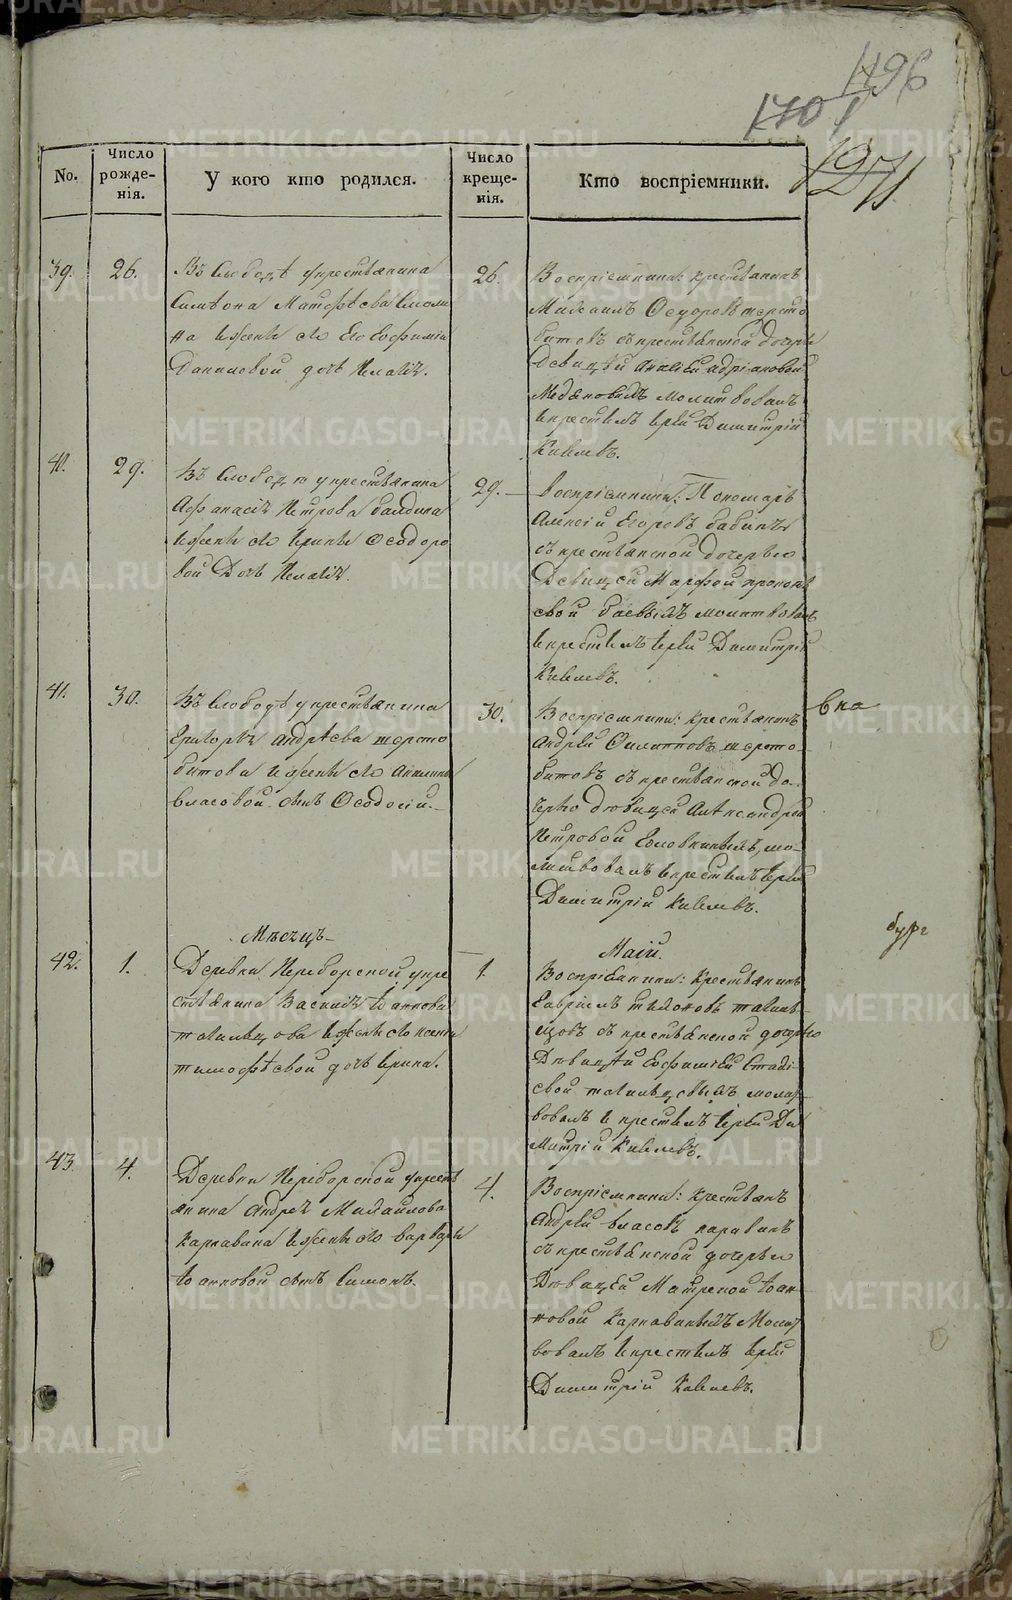 1496
1701
1271
No.
Число рожденія.
У кого кто родился.
Число крещенія.
Кто воспріемники.
39.
26.
Въ Слободѣ у крестьянина
Симеона Матфѣева
на и жены его Евфиміи
Данииловой дочь Пелагія.
26.
Воспріемники: крестьянинъ
Михаилъ Ѳедоровъ шерсто
битовъ съ крестьянской дочерью
Девицей Адріановой
молитвовалъ
и крестилъ іерей Димитрій
Кивелевъ.
40.
29.
Въ Слободѣ у крестьянина
Афанасія Петрова
и жены его Ирины Ѳеодоро
вой Дочь Пелагія.
29.
Воспріемники: Пономарь
Алексій Егоровъ
съ крестьянской дочерью
Девицей Марфой
молитвовалъ
и крестилъ іерей Димитрій
Кивелевъ.
41.
30.
Въ Слободѣ у крестьянина
Григорья Андрѣева шерсто
битова и жены его Акилины
Власовой сынъ Ѳеодосій.
30.
Воспріемники: крестьянинъ
Андрей Филиповъ шерсто-
битовъ съ крестьянской до-
черью дѣвицей Александрой
Петровой мо-
литвовалъ и крестилъ іерей
Димитрій Кивелевъ.
вка
Мѣсяцъ
Маій.
бург
42.
1.
Деревни Переборской у кре
стьянина Василія Іоаннова
и жены его Ксеніи
Тимофѣевой дочь Ирина.
1.
Воспріемники: крестьянинъ
Гавріилъ Тихоновъ
съ крестьянской дочерью
Дѣвицей Евфиміей
молит
вовалъ и крестилъ іерей Ди
митрій Кивелевъ.
43.
4.
Деревни Переборской у крест
янина Андрея Михайлова
Каркавина и жены его Варвары
Іоанновой сынъ Симонъ.
4.
Воспріемники: крестьянъ
Андрей Власовъ
съ крестьянской дочерью
Дѣвицей Матреной Іоан-
новой Каркавиныхъ Молит
вовалъ и крестилъ іерей
Димитрій Кивелевъ.
METRIKI.GASO-URAL.RU